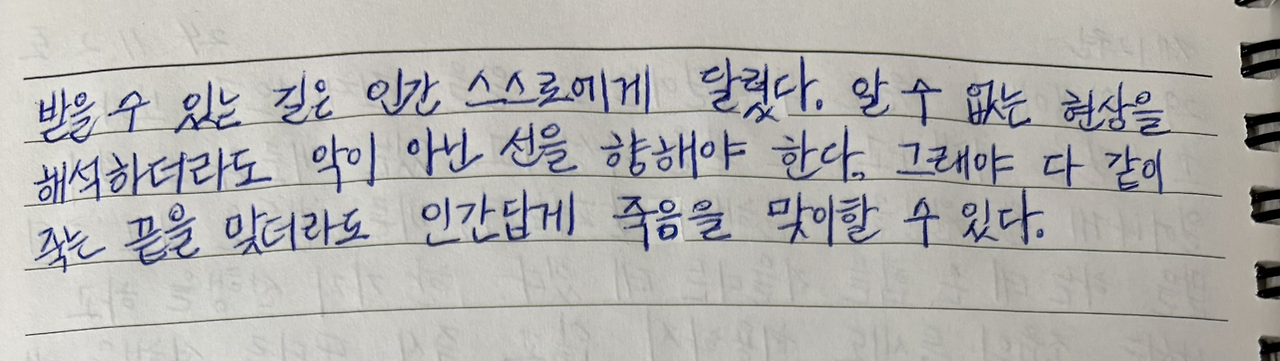 받을 수 있는 길은 인간 스스로에게 달렸다. 알 수 없는 현상을
해석하더라도 악이 아닌 선을 향해야 한다. 그래야 다 같이
죽는 끝을 맞더라도 인간답게 죽음을 맞이할 수 있다.